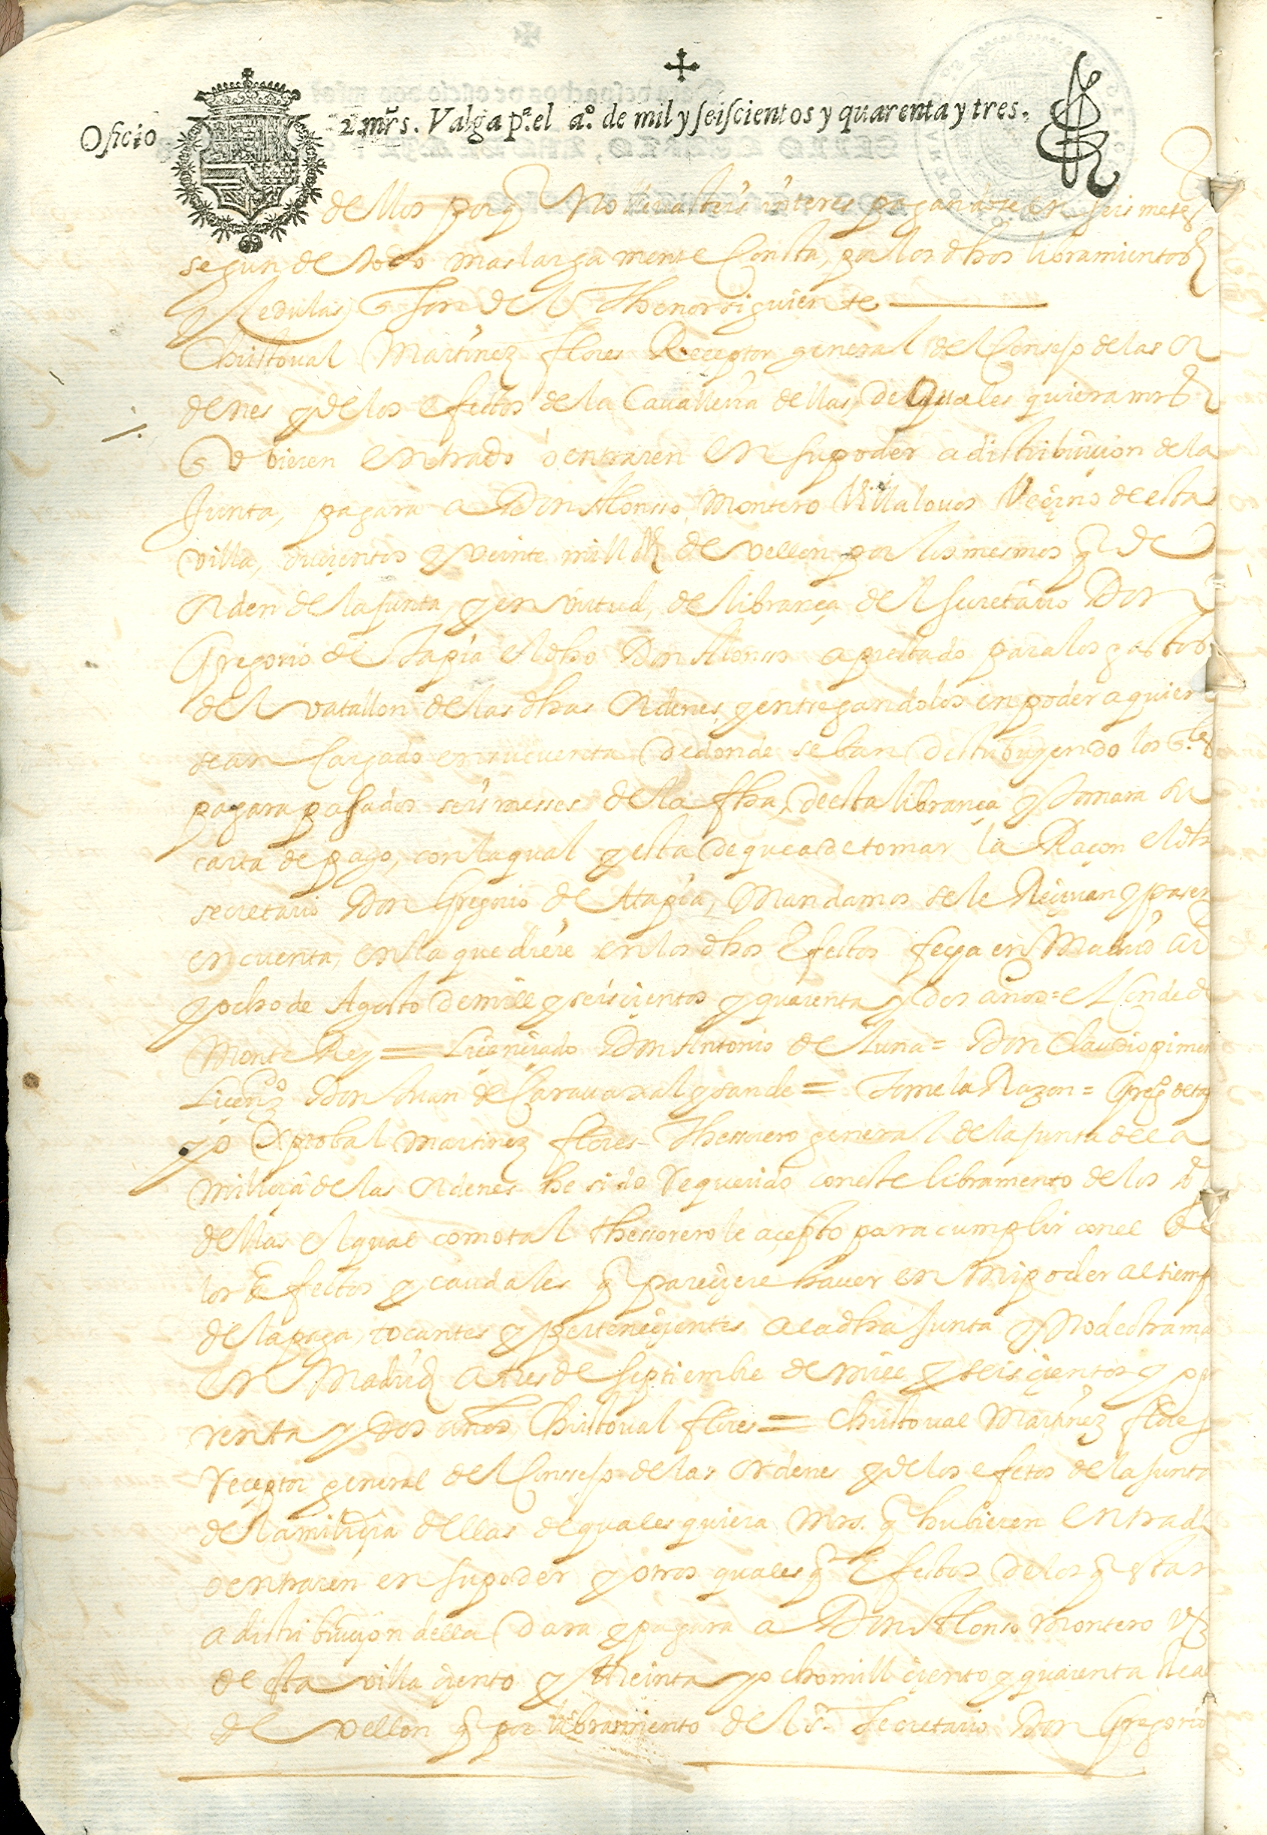 Oficio 2 mrs. Valga pa. el ao. de mil y seiscientos y quarenta y tres.
dellos porq No lleva
segun de todo mas larga mente Consta, por los dhos libramientos
y Zedulas q son del Thenor siguiente
Christoval Martinez flores Receptor general del Consejo delas Or
denes y delos efectos dela Cavalleria dellas, de quales quiera mrs
q v bieren entrado o entraren en su poder a distribuiçion dela
Junta, pagara a Don Alonsso Montero Villalovos Veçino de esta
villa, ducientos y veinte mill Rs de vellon por los mesmos q de
orden de la junta y en virtud, de librança del secretario Don
Gregorio de Tapia el dho Don Alonsso a prestado para los gastos
del vatallon de las dhas ordenes, y entregandolos en poder a quien
sean Cargado en su cuenta de donde se ban distribuyendo los q.les
pagara pasados seis messes dela fha, de esta librança y tomara su
carta de pago, con la qual y esta de que a de tomar la Raçon el dho
secretario Don Gregorio de Atapia, Mandamos se le Reçivan y pasen
en cuenta, en la que diere en los dhos Efectos fecha en Madrid a
y ocho de Agosto de mill y seisçientos y quarenta y dos años = el Conde de
Monte Rey = Liçençiado Don Antonio de Luna = Don Claudio pimen
Licendo Don Juan de Caravaxal y sande = Tome la Razon = Grego de ta
yo Xptobal Martinez flores Thessorero general de la junta de la
miliçia de las ordenes he sido requerido con este libramento de los Ss
dellas el qual como tal thessorero le açepto para cumplir con el de
los Efectos y caudales q pareçiere haver en mi poder al tiempo
de la paga, tocantes y perteneçientes a la dha junta y No de otra ma
en Madrid a tres de septiembre de mill y seisçientos y qua
renta y dos años Christoval flores = Christoval Martinez flores
receptor general del Conssejo de las ordenes y de los efetos de la junta
de la miliçia dellas de quales quiera Mrs. q hubieren entrado
o entraren en su poder y otros quales q Efectos de los q estan
a distribuiçion della dara y pagara a Don Alonso Montero Vo
de esta villa çiento y treinta y ocho mill çiento y quarenta Rea
de vellon q por libramiento del sr. secretario Don Gregorio